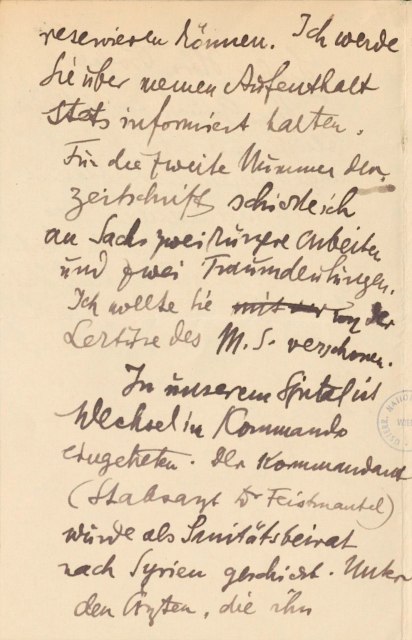 reservieren können. Ich werde
Sie über meinen Aufenthalt
stets informiert halten.
Für die zweite Nummer der
Zeitschrift schicke ich
an Sachs zwei kürzere Arbeiten
und zwei Traumdeutungen.
Ich wollte Sie mit der von der
Lektüre des M. S. verschonen.
In unserem Spital ist
Wechsel in Kommando
eingetreten. Der Kommandant
(Stabsarzt Dr Feistmantel)
wurde als Sanitätsbeirat
nach Syrien geschickt. Unter
den Ärzten, die ihn